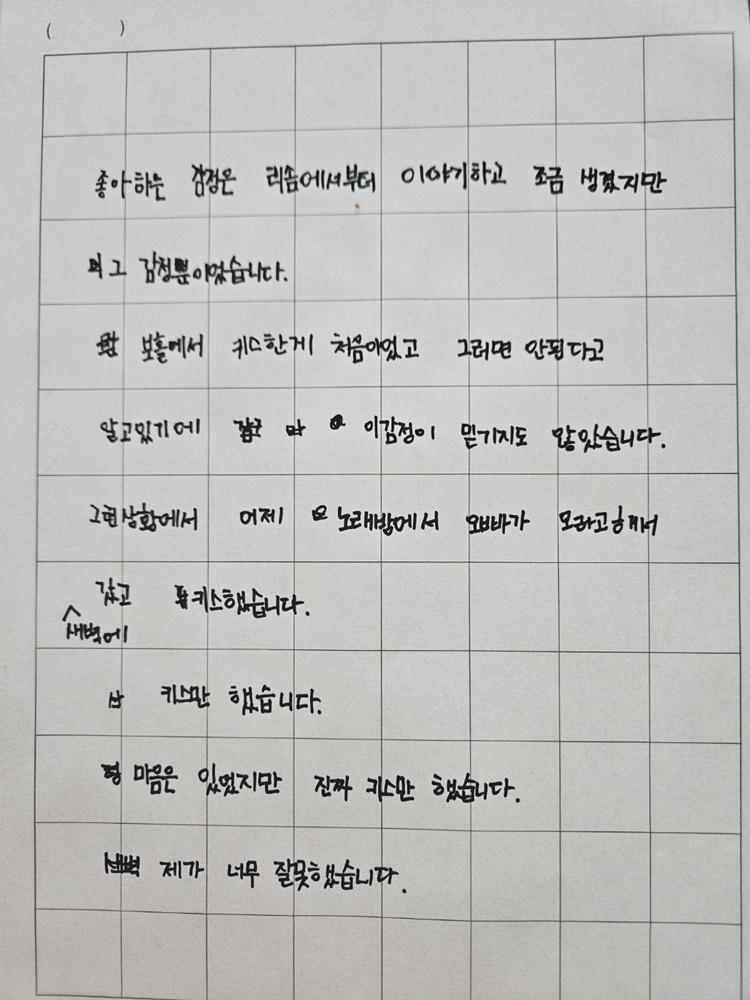 ( )
좋아하는 감정은 리솜에서부터 이야기하고 조금 생겼지만
그 감정뿐이었습니다.
보홀에서 키스한게 처음이었고 그러면 안된다고
알고있기에 이감정이 믿기지도 않았습니다.
그런상황에서 어제 노래방에서 오빠가 오라고해서
새벽에 갔고 키스했습니다.
키스만 했습니다.
마음은 있었지만 진짜 키스만 했습니다.
제가 너무 잘못했습니다.